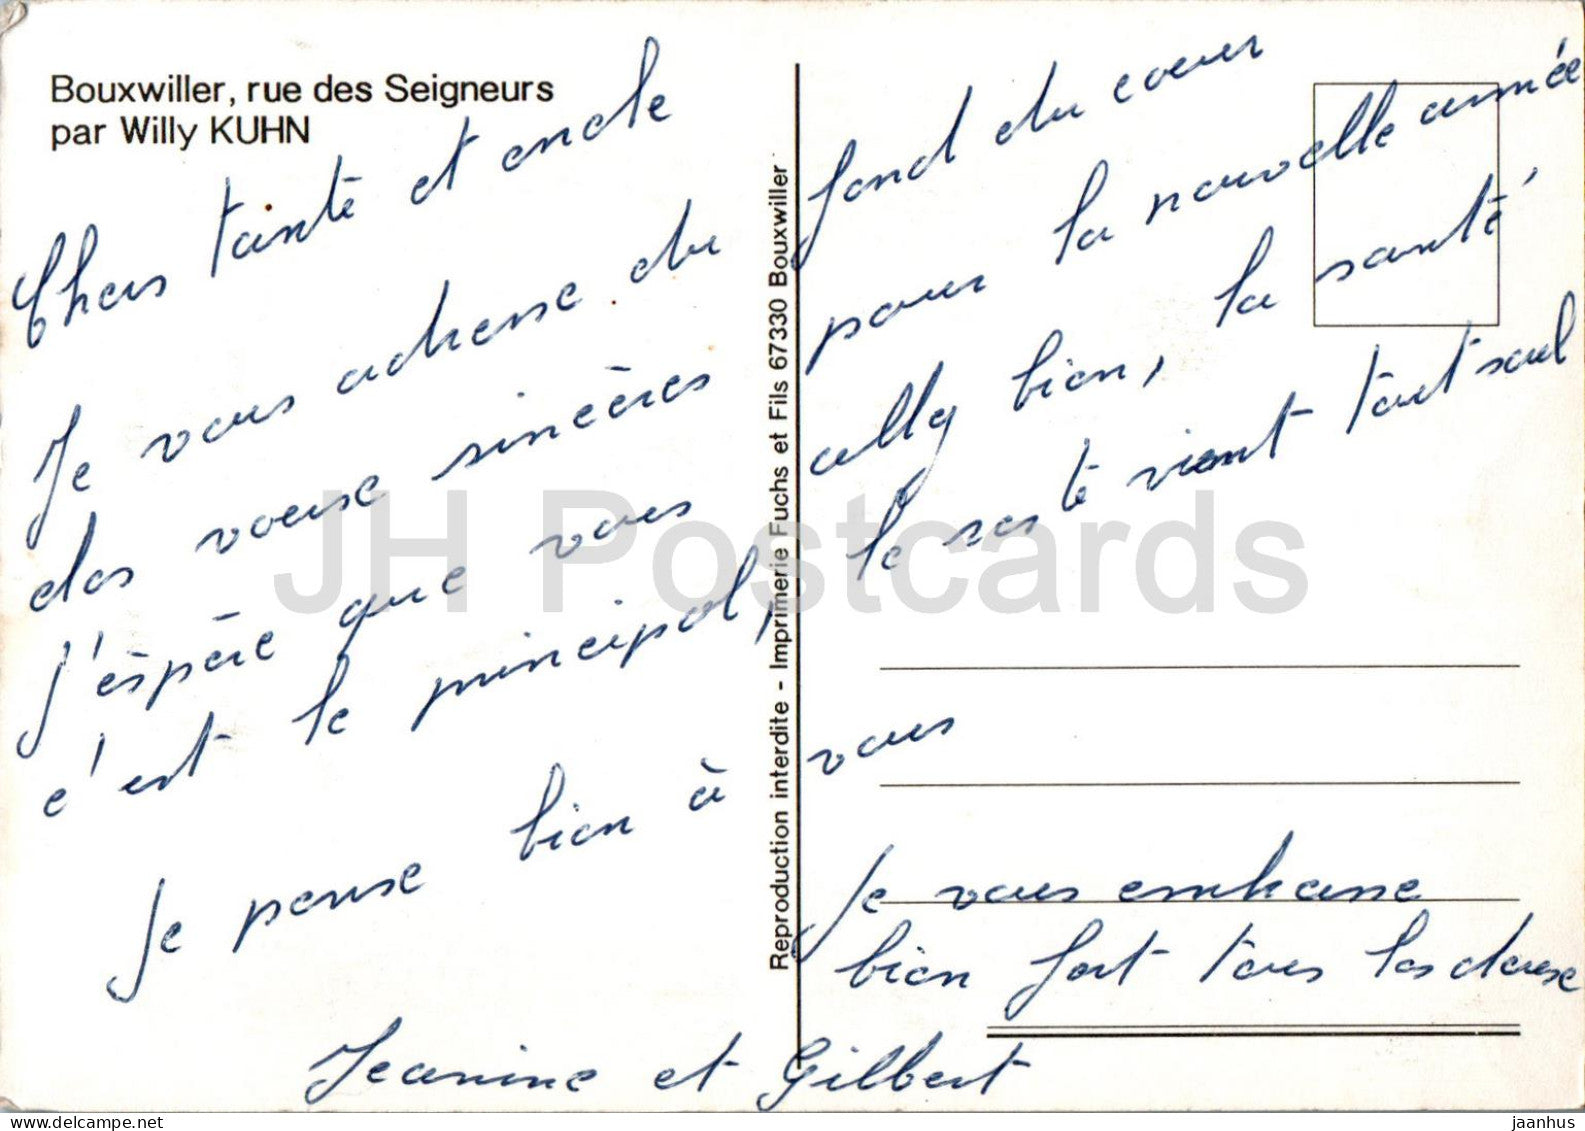 Bouxwiller, rue des Seigneurs
par Willy KUHN
Chers tante et oncle
Je vous adresse du
fond du coeur
des voeux sincères
pour la nouvelle année
J'éspère que vous
ally bien, la santé
c'est le principal,
le reste vient tout seul
Je pense bien à
vous
Je vous embrasse
bien fort tous les deuse
Jeanine et Gilbert
Reproduction interdite - Imprimerie Fuchs et Fils 67330 Bouxwiller
JH Postcards
delcampe.net
jaanhus